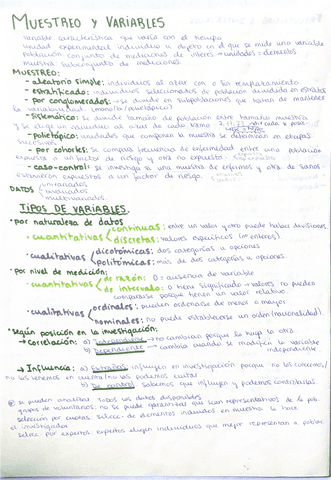 MUESTREO Y VARIABLES
variable característica que varía con el tiempo
unidad experimental individuo u objeto en el que se mide una variable
población conjunto de mediciones de interés → unidades = elementos
muestra subconjunto de mediciones.
MUESTREO:
- aleatorio simple: individuos al azar con o sin remplazamiento.
- estratificado: individuos seleccionados de población dividida en estratos
- por conglomerados: se divide en subpoblaciones que tratan de mantener
la variabilidad
- sistemático: se divide tamaño de población entre tamaño muestra
y se elige un individuo al azar de cada
- polietápico: unidades que componen la muestra se determinan en etapas
sucesivas
- por cohortes: se compara frecuencia de enfermedad entre una población
expuesta a un factor de riesgo y otra no expuesta
- caso-control: se investiga si una muestra de enfermos y otra de sanos
estuvieron expuestos a un factor de riesgo.
DATOS univariados
bivariados
multivariados
TIPOS DE VARIABLES.
• por naturaleza de datos
• cuantitativas continuas: entre un valor y otro puede haber divisiones
discretas: valores específicos (nº enteros)
• cualitativas dicotómicas: dos categorías u opciones
politómicas: más de dos categorías u opciones.
• por nivel de medición:
• cuantitativas de razón: 0 : ausencia de variable
de intervalo: 0 tiene significado → valores no pueden
compararse porque tienen un valor relativo.
• cualitativas ordinales: pueden ordenarse de menor a mayor
nominales: no puede establecerse un orden (nacionalidad).
• según posición en la investigación:
→ Correlación: a) Independiente → no cambian porque lo haga la otra
b) Dependiente → cambia cuando se modifica la variable
independiente
→ Influencia: a) Extrañas influyen en investigación porque no las conocemos/
no las tenemos en cuenta/no las podemos evitar
b) De control sabemos que influyen y podemos controlarlas.
si pueden analizar todos los datos disponibles
grupos de voluntarios: no se puede garantizar que sean representativos de la pob.
selección por cuotas: selecc. de elementos incluidos en muestra lo hace
el investigador
selecc por expertos: expertos eligen individuos que mejor representan a